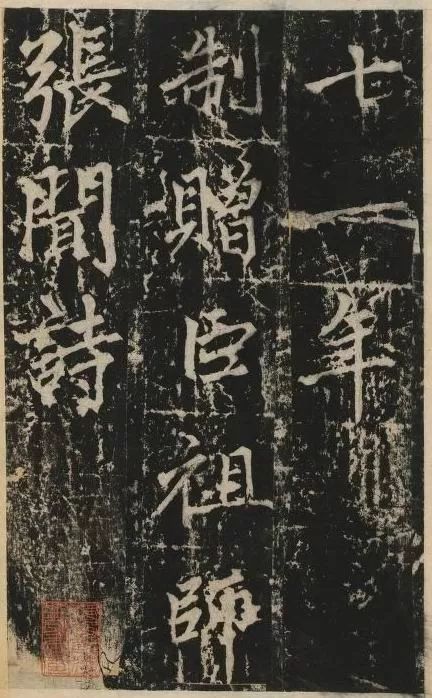 七一年
制贈臣祖師
張聞詩